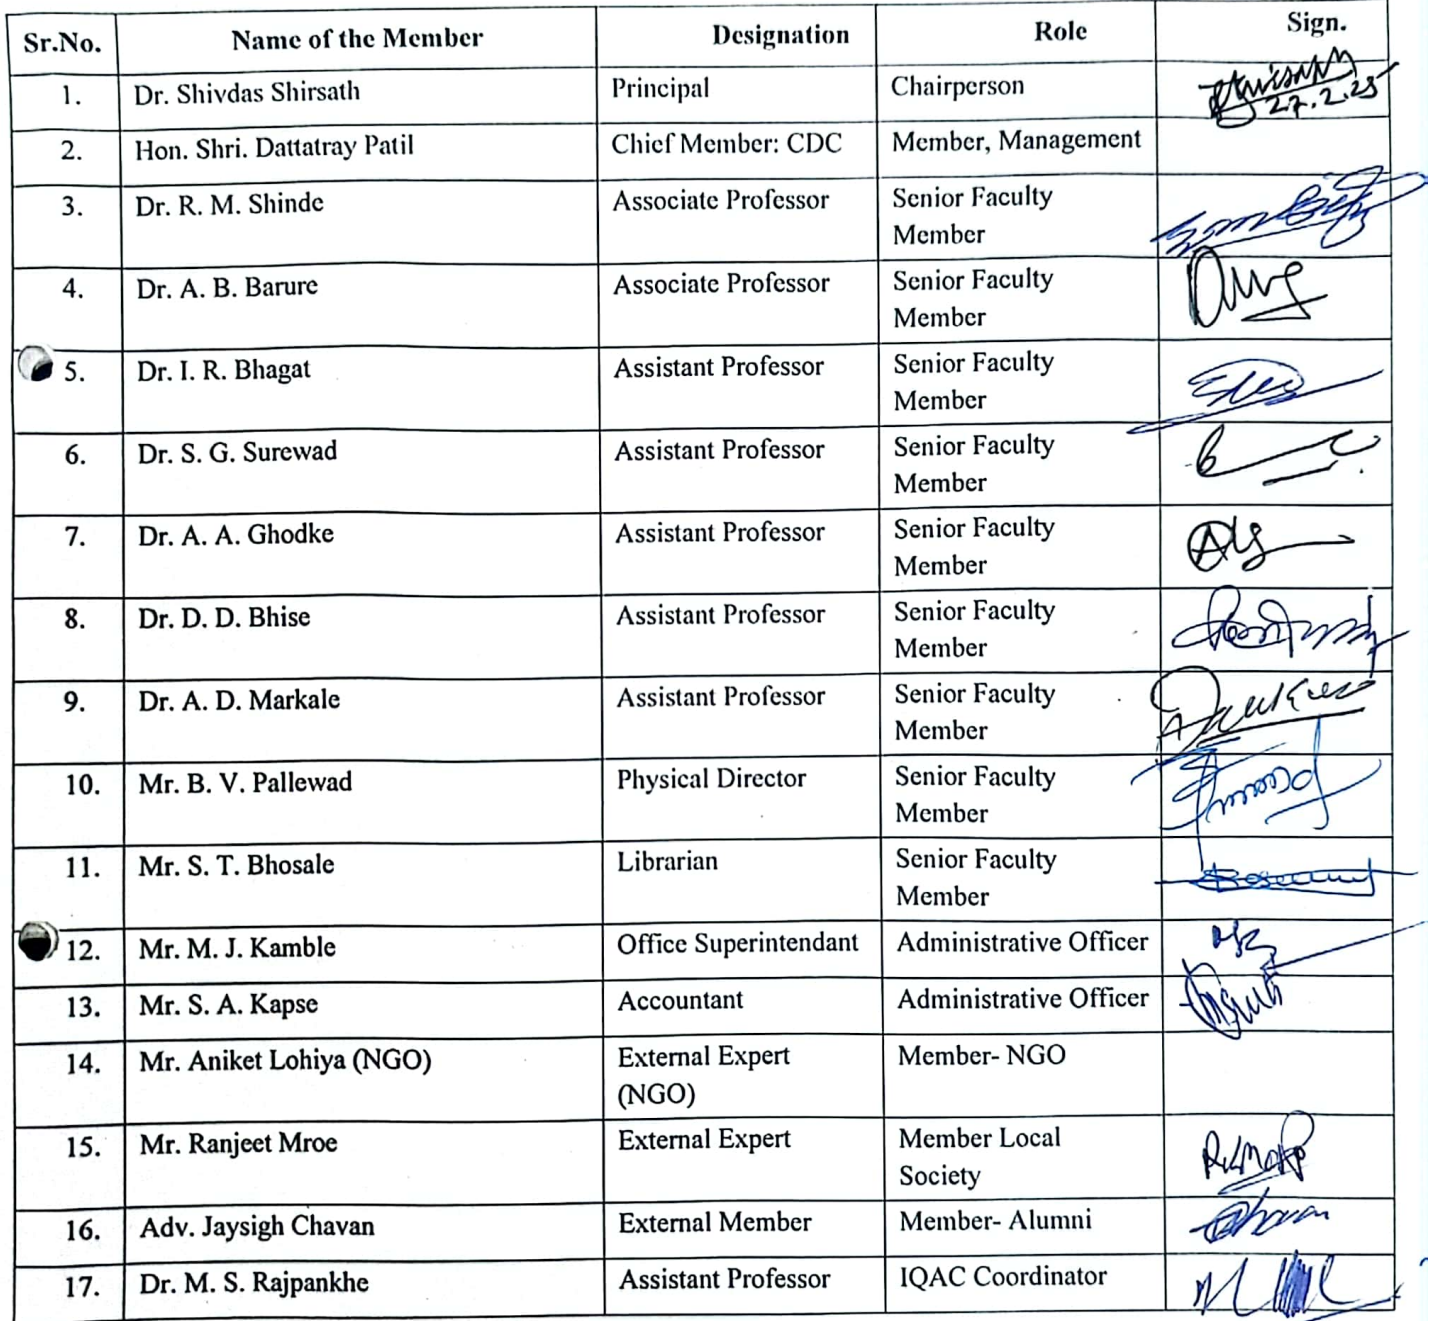 Sr.No. Name of the Member Designation Role Sign.
1. Dr. Shivdas Shirsath Principal Chairperson
27.2.25
2. Hon. Shri. Dattatray Patil Chief Member: CDC Member, Management
3. Dr. R. M. Shinde Associate Professor Senior Faculty
Member
4. Dr. A. B. Barure Associate Professor Senior Faculty
Member
5. Dr. I. R. Bhagat Assistant Professor Senior Faculty
Member
6. Dr. S. G. Surewad Assistant Professor Senior Faculty
Member
7. Dr. A. A. Ghodke Assistant Professor Senior Faculty
Member
8. Dr. D. D. Bhise Assistant Professor Senior Faculty
Member
9. Dr. A. D. Markale Assistant Professor Senior Faculty
Member
10. Mr. B. V. Pallewad Physical Director Senior Faculty
Member
11. Mr. S. T. Bhosale Librarian Senior Faculty
Member
12. Mr. M. J. Kamble Office Superintendant Administrative Officer
13. Mr. S. A. Kapse Accountant Administrative Officer
14. Mr. Aniket Lohiya (NGO) External Expert Member- NGO
(NGO)
15. Mr. Ranjeet Mroe External Expert Member Local
Society
16. Adv. Jaysigh Chavan External Member Member- Alumni
17. Dr. M. S. Rajpankhe Assistant Professor IQAC Coordinator